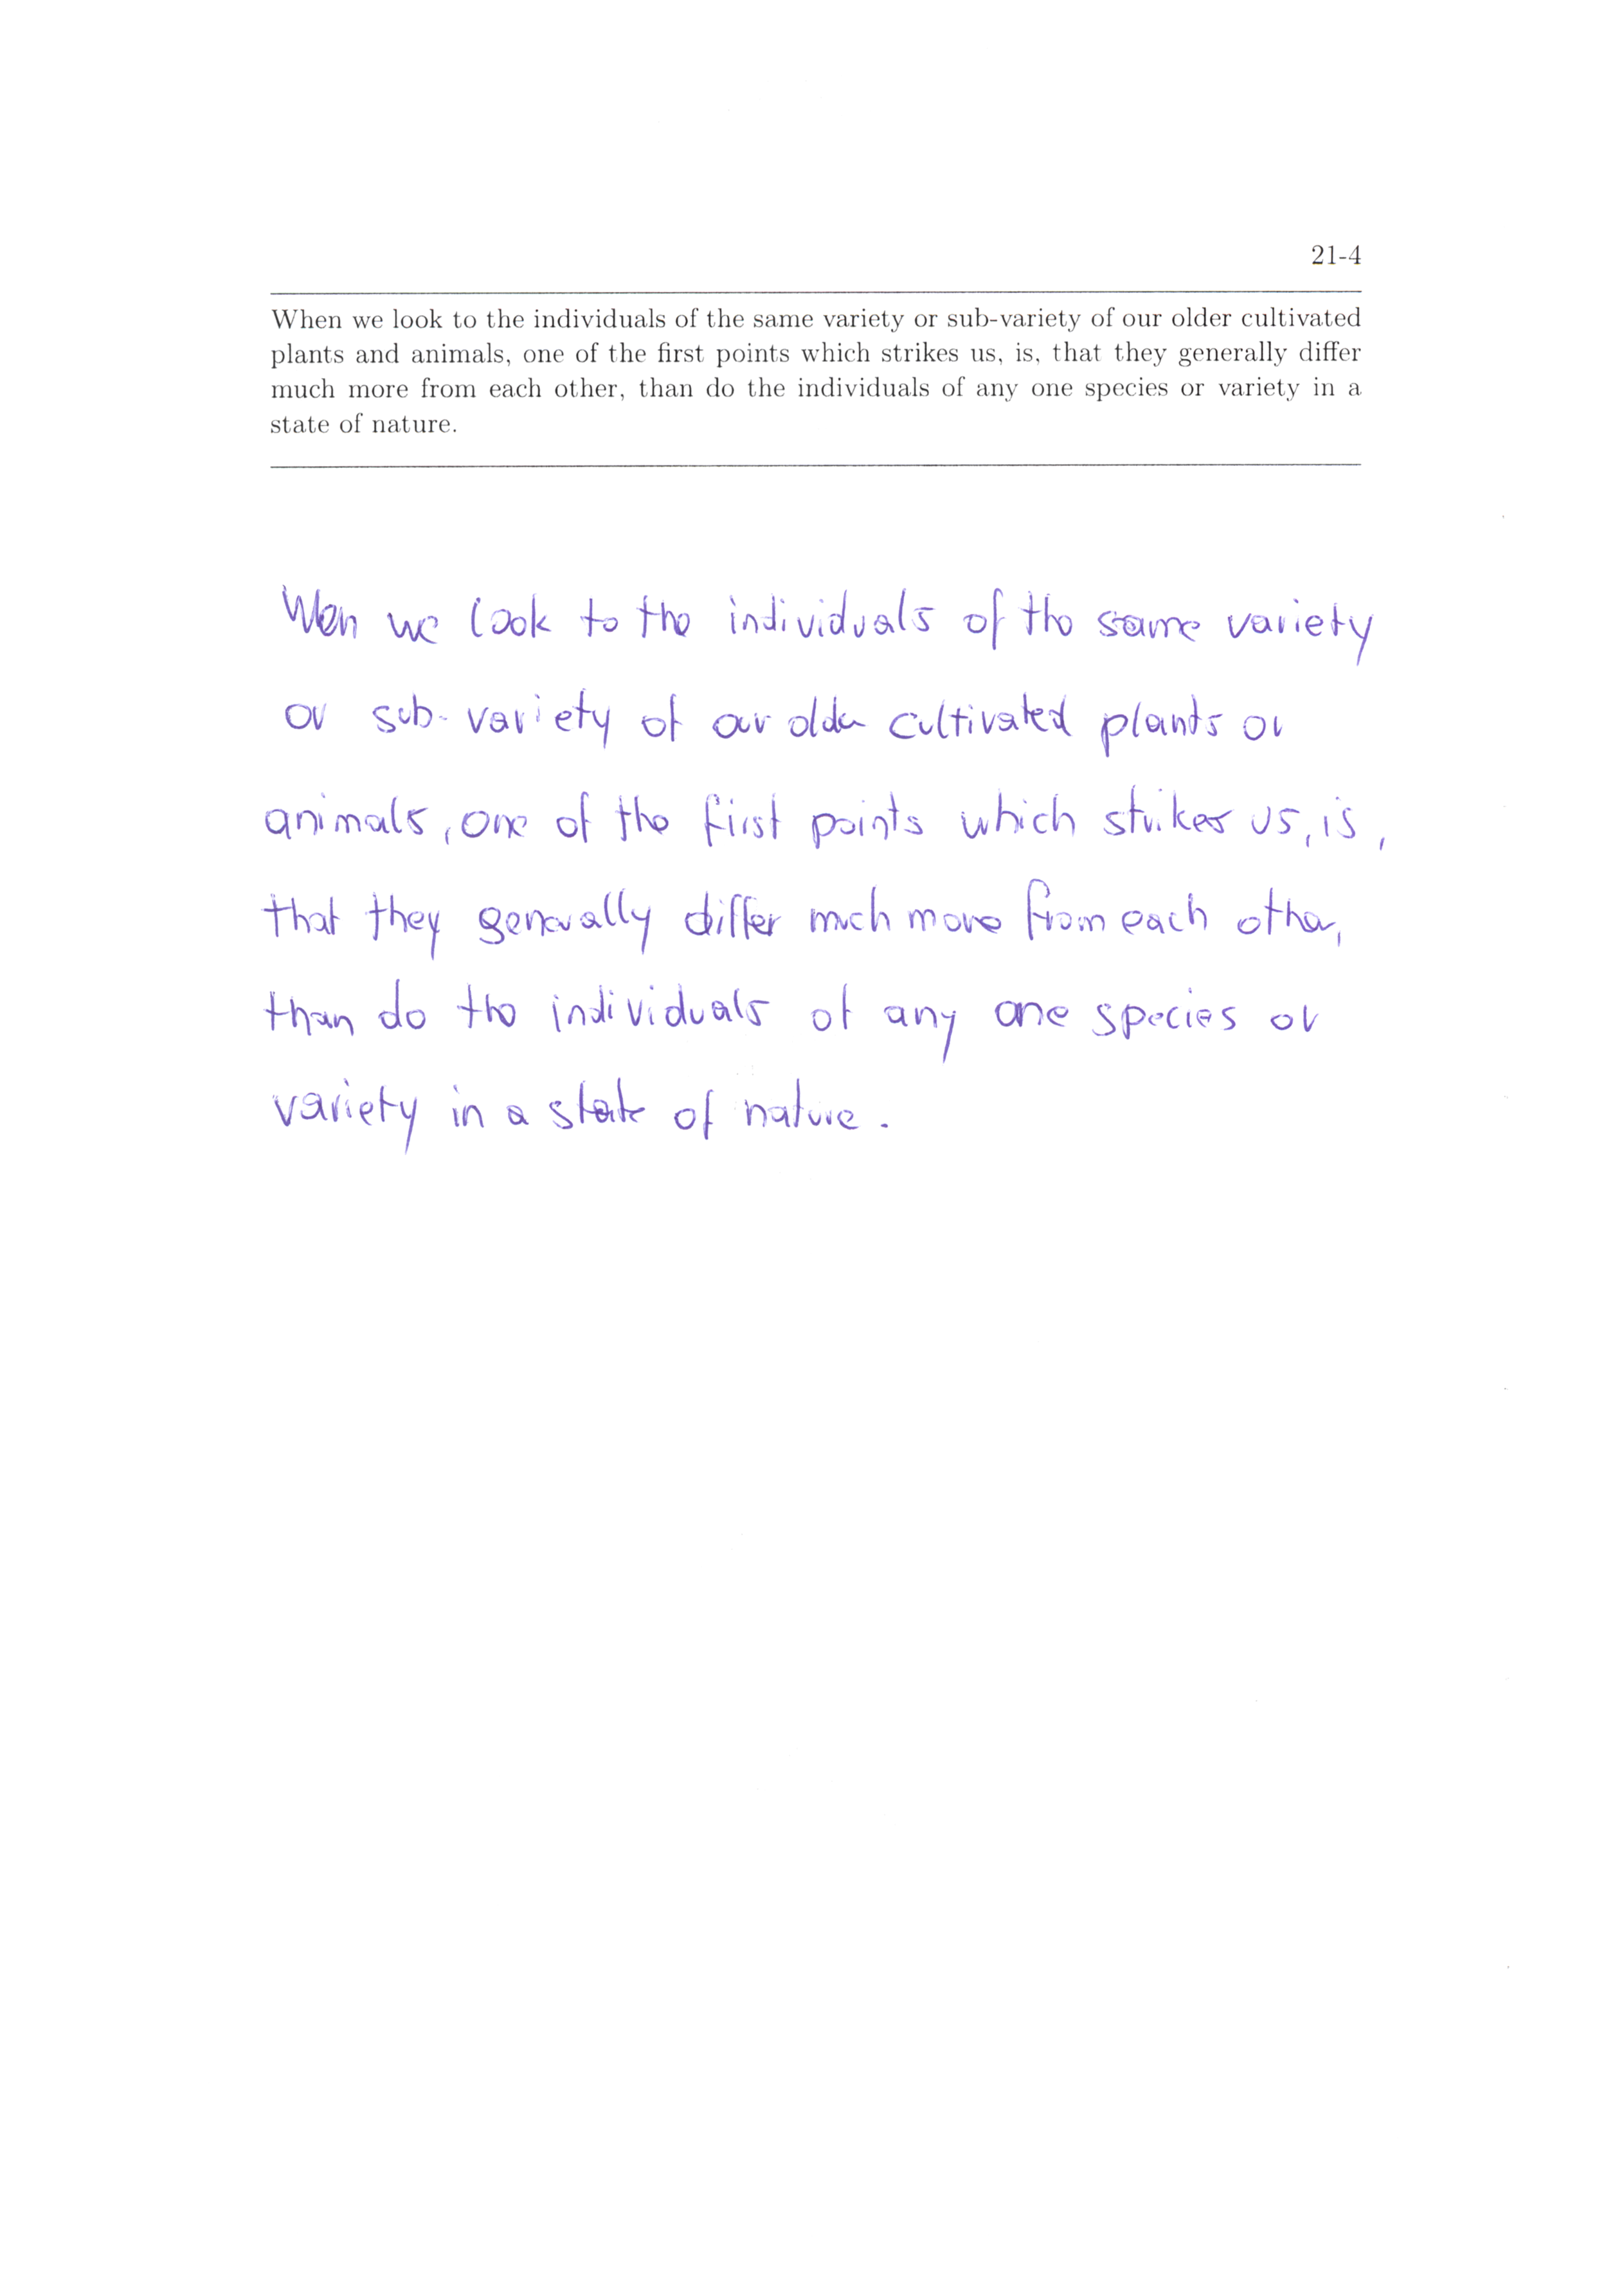 21-4
When we look to the individuals of the same variety or sub-variety of our older cultivated
plants and animals, one of the first points which strikes us, is, that they generally differ
much more from each other, than do the individuals of any one species or variety in a
state of nature.
When we look to the individuals of the same variety
or sub-variety of our older cultivated plants or
animals, one of the first points which strikes us, is,
that they generally differ much more from each other,
than do the individuals of any one species or
variety in a state of nature.